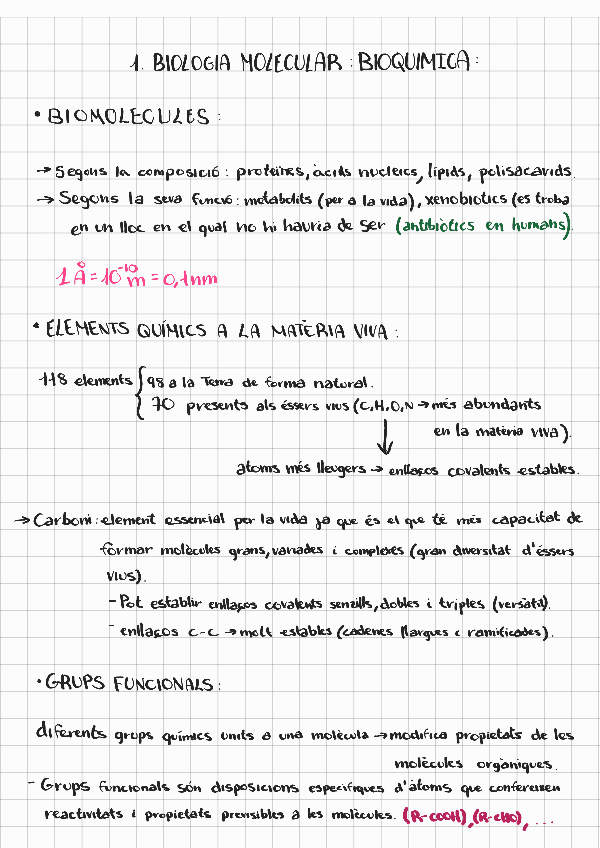 1. BIOLOGIA MOLECULAR : BIOQUIMICA :
• BIOMOLECULES :
→ Segons la composició : proteïnes, àcids nucleics, lípids, polisacàrids.
→ Segons la seva funció : metabòlits (per a la vida), xenobiòtics (es troba
en un lloc en el qual no hi hauria de ser (antibiòtics en humans).
1 Å = 10⁻¹⁰ m = 0,1 nm
• ELEMENTS QUÍMICS A LA MATÈRIA VIVA :
118 elements { 98 a la Terra de forma natural.
70 presents als éssers vius (C,H,O,N → més abundants
en la matèria viva).
↓
àtoms més lleugers → enllaços covalents estables.
→ Carboni : element essencial per la vida ja que és el que té més capacitat de
formar molècules grans, variades i complexes (gran diversitat d'éssers
vius).
- Pot establir enllaços covalents senzills, dobles i triples (versàtil).
- enllaços C-C → molt estables (cadenes llargues i ramificades).
• GRUPS FUNCIONALS :
diferents grups químics units a una molècula → modifica propietats de les
molècules orgàniques.
- Grups funcionals són disposicions específiques d'àtoms que confereixen
reactivitats i propietats previsibles a les molècules. (R-COOH), (R-CHO), ...